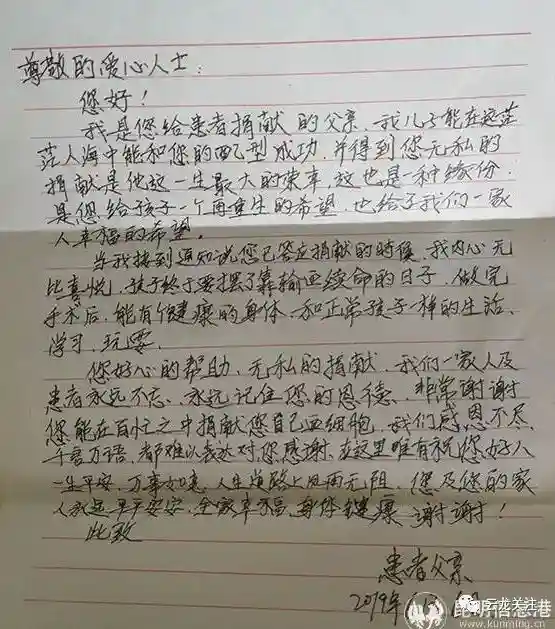 尊敬的爱心人士：
您好！
我是您给患者捐献的父亲，我儿子能在这茫
茫人海中能和您的配型成功，并得到您无私的
捐献是他这一生最大的荣幸，这也是一种缘份，
是您给孩子一个再重生的希望，也给了我们一家
人幸福的希望。
当我接到通知说您已答应捐献的时候，我内心无
比喜悦，孩子终于要摆了靠输血续命的日子，做完
手术后，能有个健康的身体，和正常孩子一样的生活、
学习，玩耍。
您好心的帮助，无私的捐献，我们一家人及
患者永远不忘、永远记住您的恩德、非常谢谢
您能在百忙之中捐献您自己血细胞，我们感恩不尽
千言万语，都难以表达对您感谢，在这里唯有祝您好人
一生平安，万事如意，人生道路上风雨无阻，您及您的家
人永远平平安安，全家幸福，身体健康 谢谢！
此致
患者父亲
2019年
云龙关注
昆明信息港
www.kunming.cn